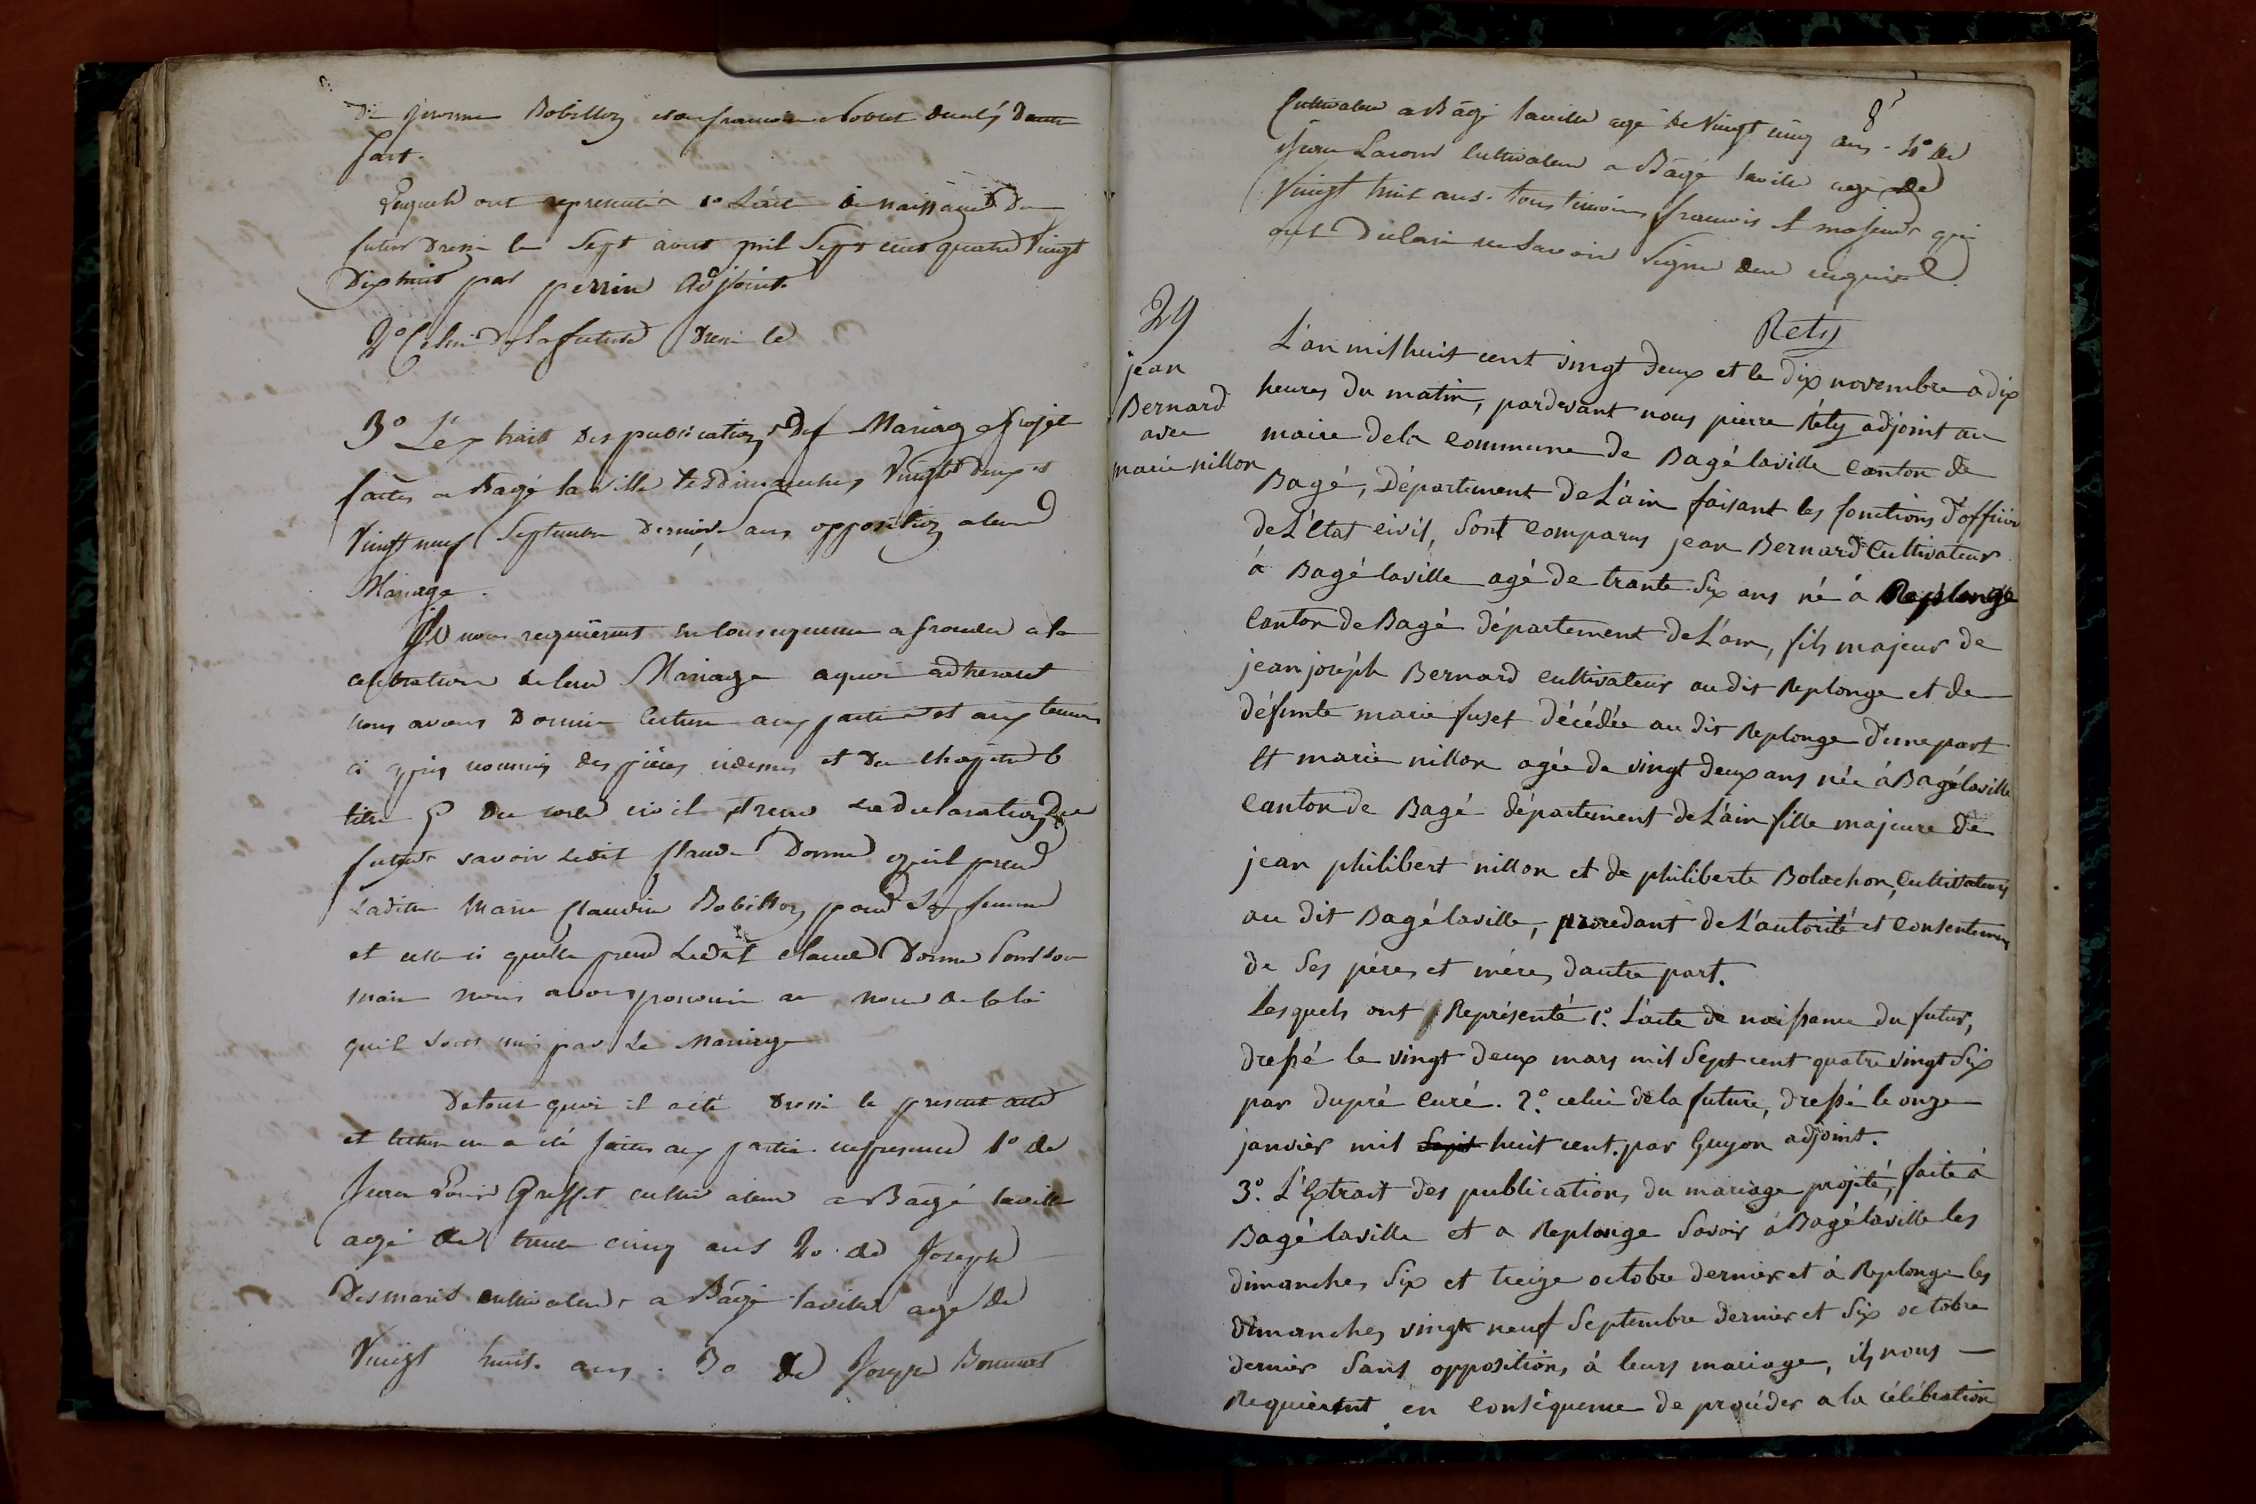 De jerome Bobillon et de francoise Loblet dud. dautre
part.
Lesquels ont representé 1º L'acte de naissance du
futur dressé le Sept aout mil Sept cent quatre Vingt
Dix huit par perrin adjoint.
2º Celui de la future Dressé le
3º L'extrait des publications de Mariage projeté
faites a Bagé la ville les dimanches Vingt deux et
Vingt neuf Septembre Dernier Sans opposition a leur
Mariage.
Ils nous requierent en Consequence a proceder a la
celebration de leur Mariage aquoi adherant
nous avons Donné lecture aux parties et aux temoins
ci après nommés des pièces cidessus et du chapitre 6
titre 5 du code civil et reçu La declaration des
futurs savoir Ledit Claude Donne qu'il prend
Ladite Marie Claudine Bobillon pour Sa femme
et celle ci quelle prend Ledit Claude Donne pour son
mari nous avons prononcé au nom de la loi
quil sont unis par Le Mariage
De tout quoi il a été Dressé le present acte
et lecture en a été faite aux parties en presence 1º de
Jean Louis Greffet cultivateur a Bagé laville
agé de trente cinq ans 2º de Joseph
Desmaris cultivateur a Bagé laville agé de
Vingt huit ans. 3º de Joseph Bonnet
8
Cultivateur a Bagé laville agé de Vingt cinq ans. 4º de
Jean Lacour Cultivateur a Bagé laville agé de
Vingt huit ans. tous temoins francois et majeurs qui
ont Declaré ne Savoir Signer de ce enquis.
Rety
29
jean
Bernard
avec
marie nillon
L'an mil huit cent vingt deux et le dix novembre a dix
heures du matin, pardevant nous pierre Réty adjoint au
maire de la Commune de Bagé laville Canton de
Bagé, Département de L'ain faisant les fonctions d'officier
de L'état civil, Sont Comparus jean Bernard Cultivateur
à Bagé laville agé de trante Six ans né à Replonge
Canton de Bagé département de L'ain, fils majeur de
jean joséph Bernard Cultivateur au dit Replonge et de
défunte marie fuset décédée au dit Replonge D'une part
Et marie nillon agée de vingt deux ans née à Bagé laville
Canton de Bagé département de L'ain fille majeure de
jean philibert nillon et de philiberte Bolachon, Cultivateurs
au dit Bagé laville, procedant de L'autorité et Consentement
de Ses pére, et mére, dautre part.
Lesquels ont Représenté 1º. L'acte de naissance du futur,
dressé le vingt deux mars mil Sept cent quatre vingt Six
par dupré Curé. 2º. celui de la future, dressé le onze
janvier mil Sept huit cent. par Guyon adjoint.
3º. L'Extrait des publications, du mariage projété, faite à
Bagé laville et a Replonge Savoir à Bagé laville les
dimanches Six et treize octobre dernier et à Replonge les
dimanches, vingt neuf Septembre dernier et Six octobre
dernier Sans opposition, à leurs mariage, ils nous
Requierent en Conséquence de procéder a la célébration